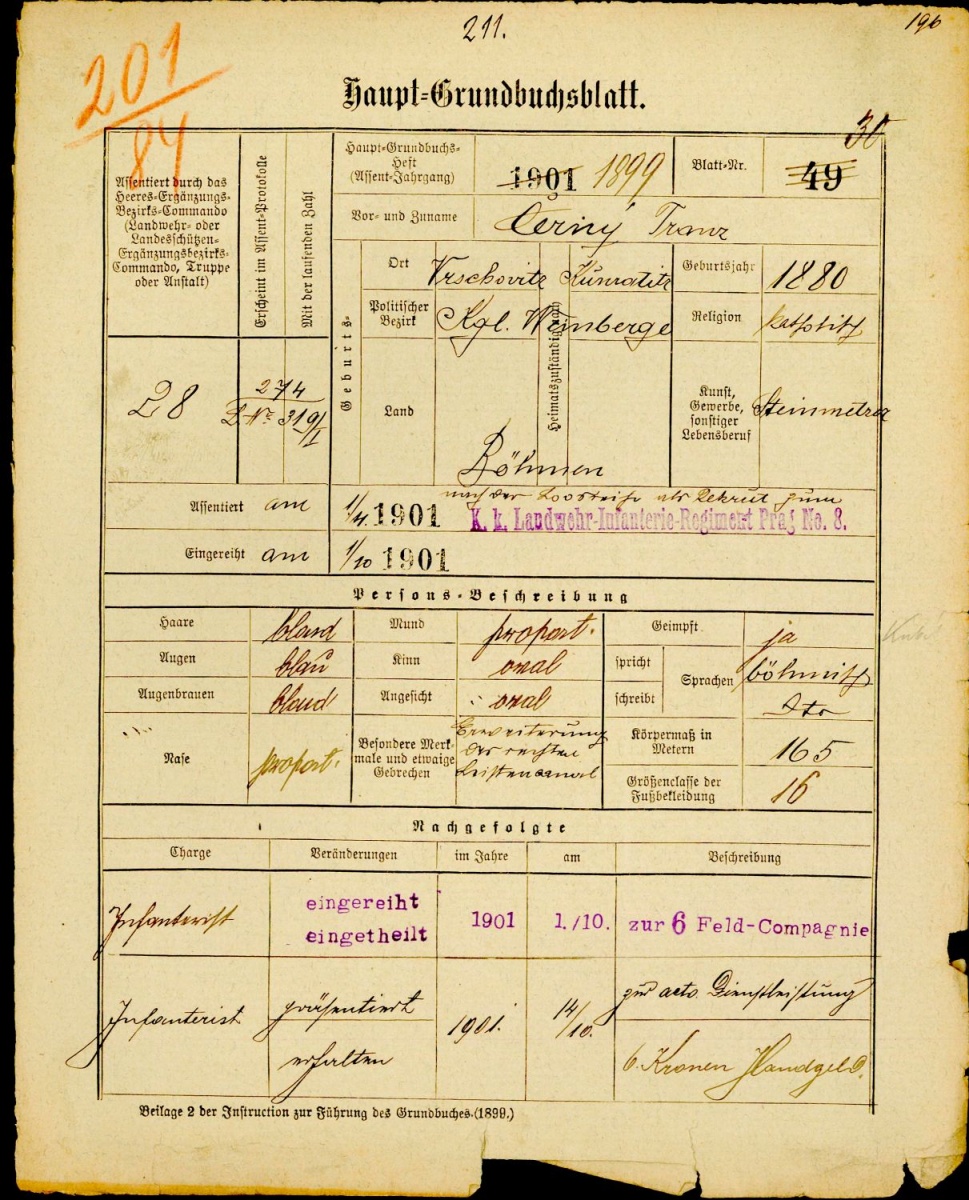 211.
196
201
84
Haupt=Grundbuchsblatt.
30
Assentiert durch das
Heeres-Ergänzungs-
Bezirks-Commando
(Landwehr- oder
Landesschützen-
Ergänzungsbezirks-
Commando, Truppe
oder Anstalt)
Erscheint im Assent-Protokolle
Mit der laufenden Zahl
Haupt-Grundbuchs-
Heft
(Assent-Jahrgang)
1901 1899
Blatt-Nr.
49
Vor- und Zuname
Černý Franz
Geburts-
Ort
Vrschovitz
Heimatszuständig nach
Kunratitz
Geburtsjahr
1880
Politischer
Bezirk
Kgl. Weinberge
Religion
katholisch
Land
Böhmen
Kunst,
Gewerbe,
sonstiger
Lebensberuf
Steinmetzer
28
274
L Nr. 319/I
Assentiert am
1901
nach der Losreihe als Rekrut zum
K. k. Landwehr-Infanterie-Regiment Prag No. 8.
Eingereiht am
1/10 1901
Persons-Beschreibung
Haare
blond
Mund
proport.
Geimpft
ja
Augen
blau
Kinn
oval
spricht
Sprachen
böhmisch
Augenbrauen
blond
Angesicht
oval
schreibt
dto
Nase
proport.
Besondere Merk-
male und etwaige
Gebrechen
Erweiterung
des rechten
Leistencanal
Körpermaß in
Metern
165
Größenclasse der
Fußbekleidung
16
Nachgefolgte
Charge
Veränderungen
im Jahre
am
Beschreibung
Infanterist
eingereiht
eingetheilt
1901
1./10.
zur 6 Feld-Compagnie
Infanterist
präsentiert
1901.
14/10.
zur activ. Dienstleistung
erhalten
6 Kronen Handgeld.
Beilage 2 der Instruction zur Führung des Grundbuches.(1899.)